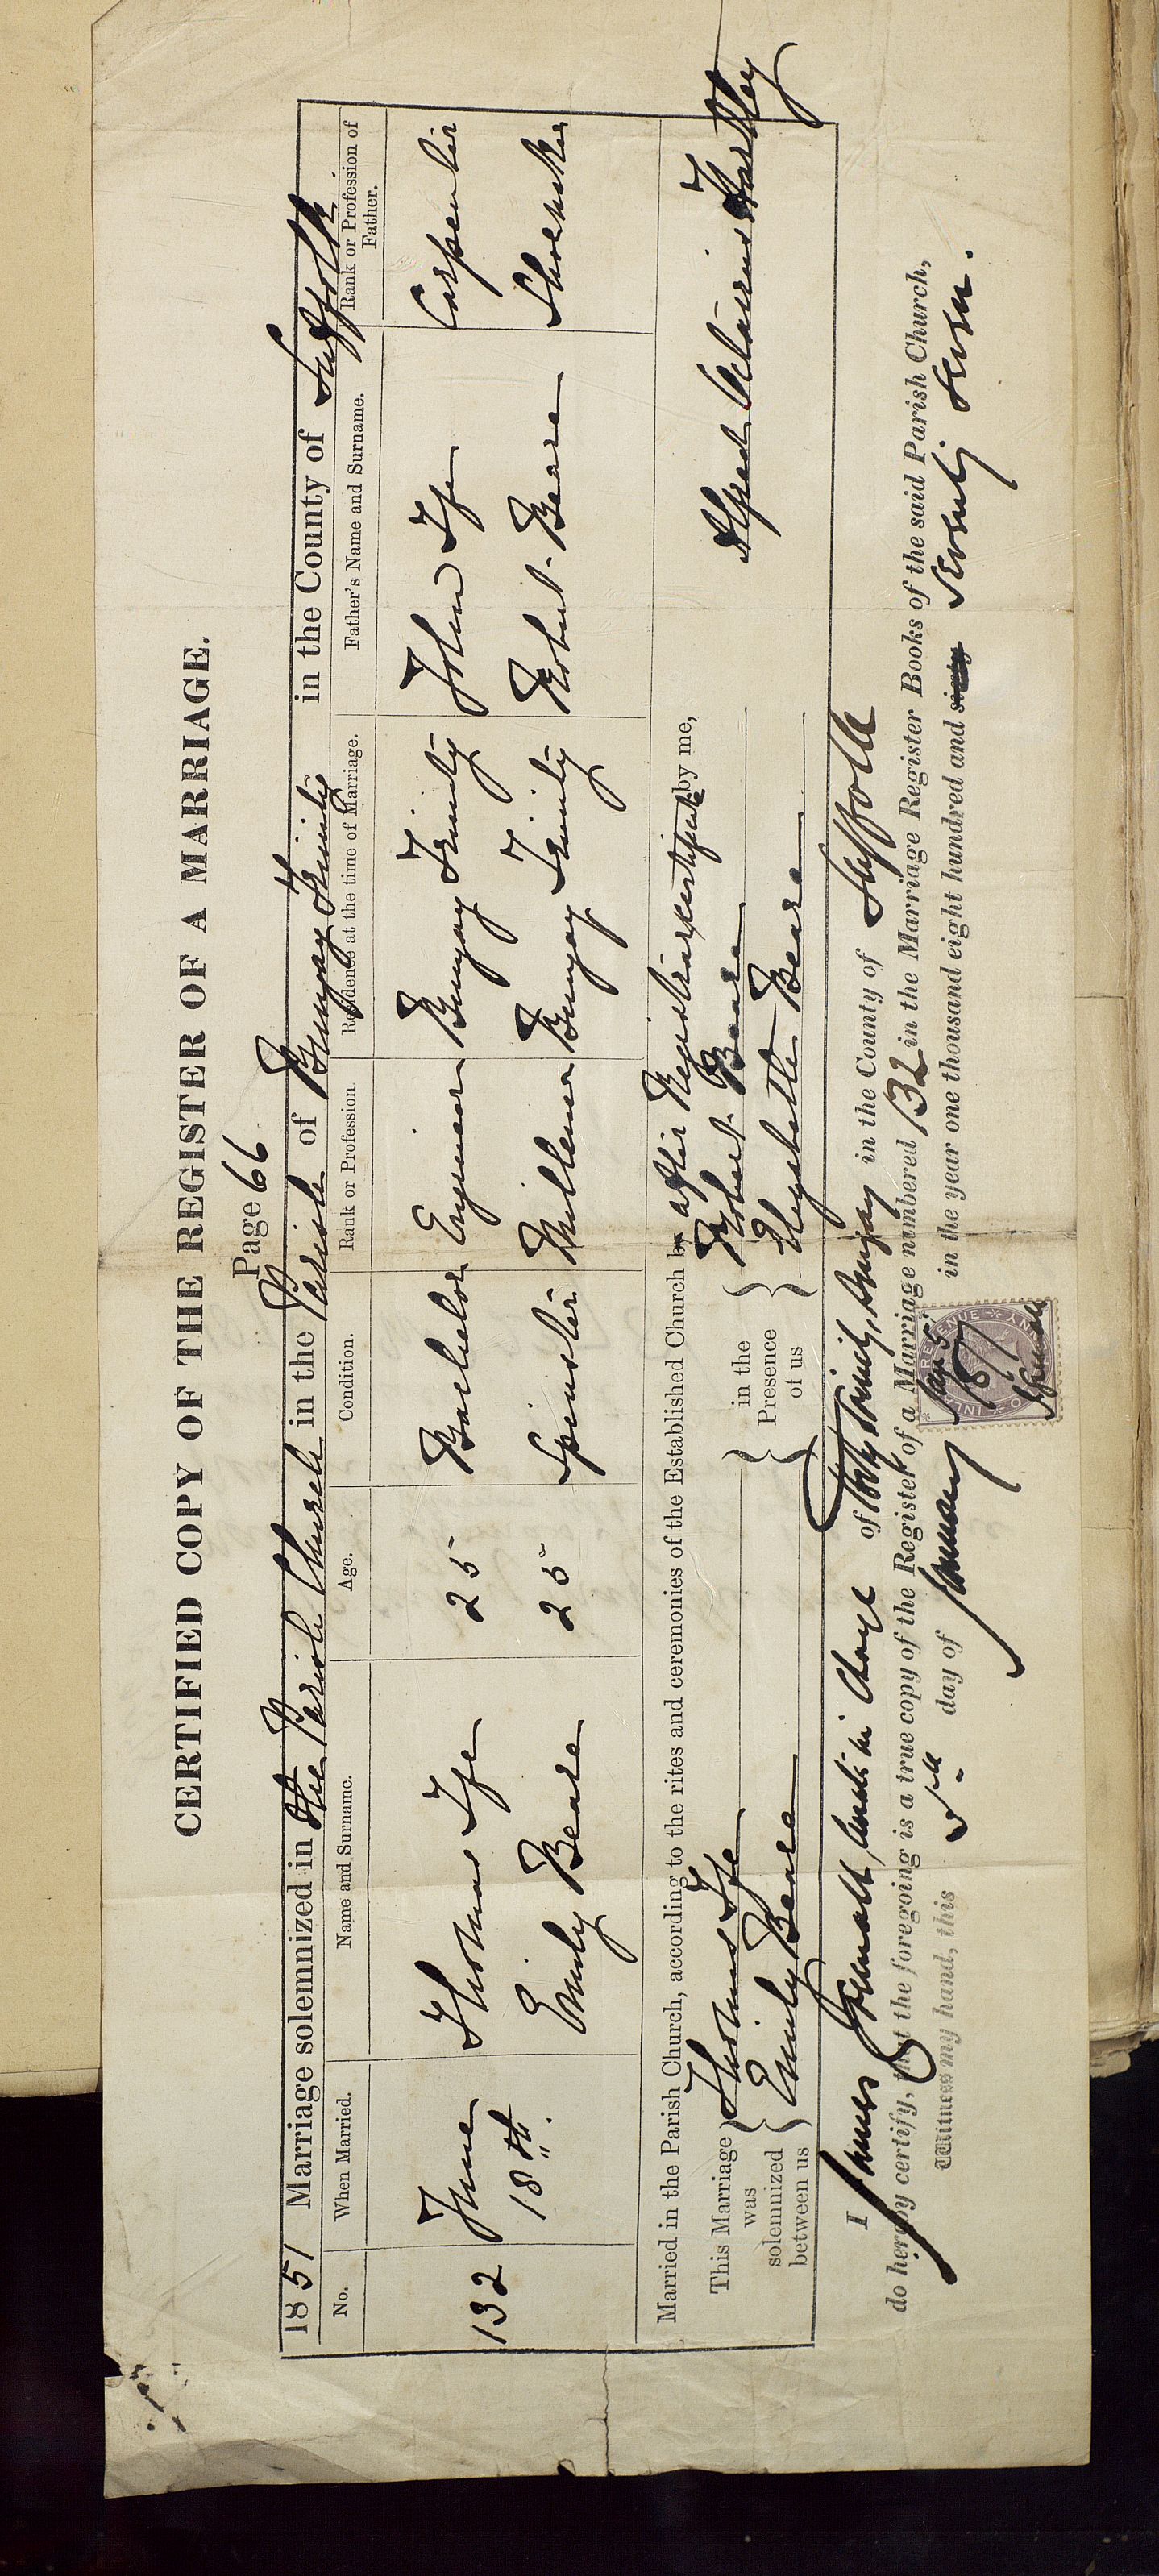 CERTIFIED COPY OF THE REGISTER OF A MARRIAGE.
Page 66
1851 Marriage solemnized in the Parish Church in the Parish of Bungay Trinity in the County of Suffolk.
No. When Married. Name and Surname. Age. Condition. Rank or Profession Residence at the time of Marriage. Father's Name and Surname. Rank or Profession of Father.
132 June 18th. Thomas Fye 25 Bachelor Engineer Bungay Trinity John Fye Carpenter
Emily Beare 25 Spinster Milliner Bungay Trinity Robert Beare Shoemaker
Married in the Parish Church, according to the rites and ceremonies of the Established Church by after Registrar certificate by me,
This Marriage was solemnized between us { Thomas Fye } in the Presence of us { Robert Beare Alfred Hartley
Emily Beare Elizabeth Beare
I James of Holy Trinity, Bungay in the County of Suffolk
do hereby certify, that the foregoing is a true copy of the Register of a Marriage numbered 132 in the Marriage Register Books of the said Parish Church,
Witness my hand, this 5th day of January in the year one thousand eight hundred and sixty seventy seven.
INLAND REVENUE
Jan 5
1877